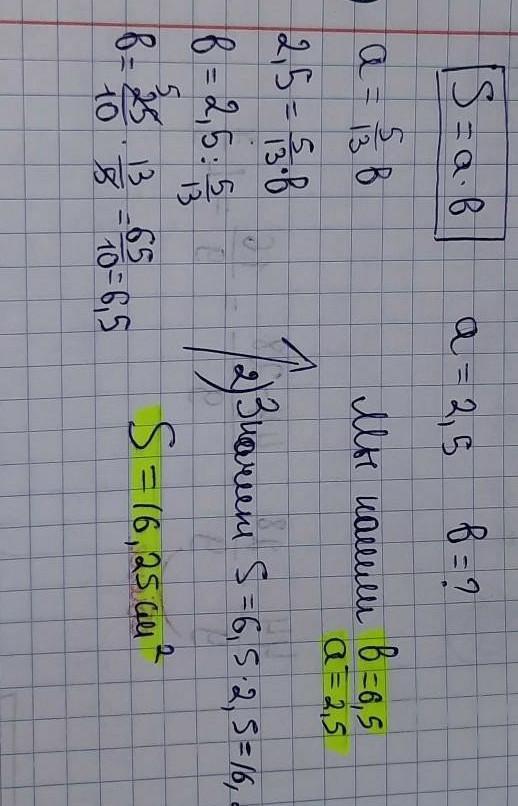 S = a · в
a = 2,5 в = ?
a = 5/13 в
2,5 = 5/13 · в
в = 2,5 : 5/13
в = 25/10 · 13/5 = 65/10 = 6,5
5
Мы нашли в = 6,5
a = 2,5
2) Значит S = 6,5 · 2,5 = 16,
S = 16,25 см²